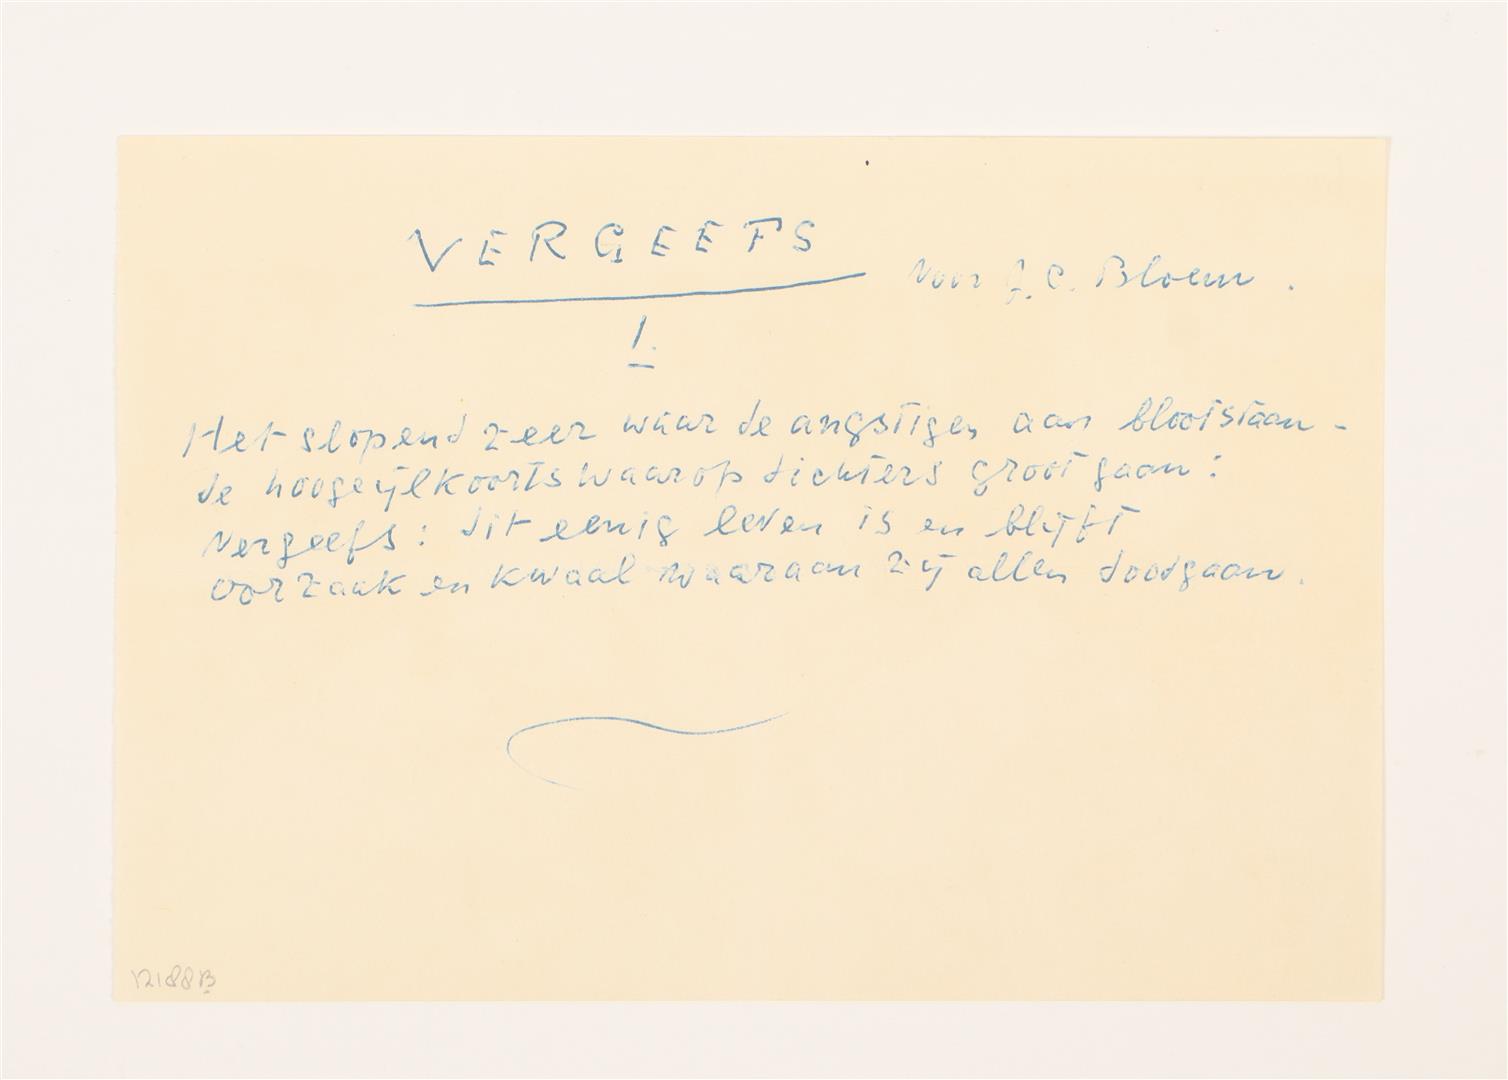 VERGEEFS
voor J. C. Bloem.
1.
Het slopend zeer waar de angstigen aan blootstaan -
de hoogeylkoorts waarop dichters groot gaan:
vergeefs: dit eenig leven is en blijft
oorzaak en kwaal waaraan zij allen doodgaan.
12188B